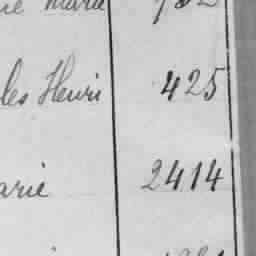 Marie
les Henri 425
arie 2414